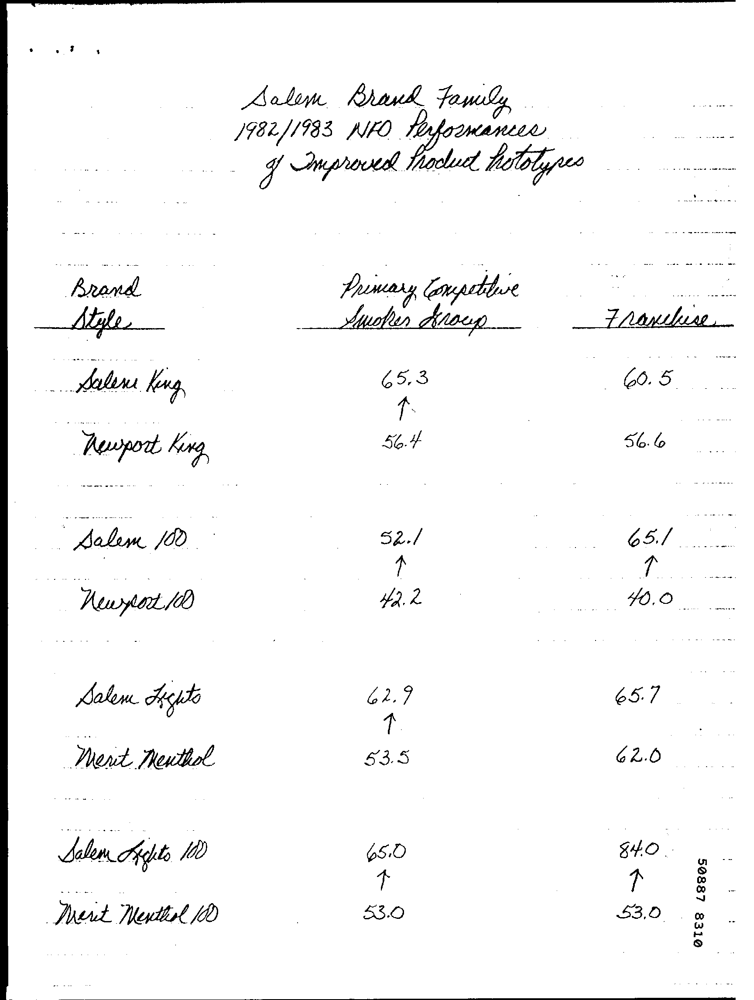 Salem Brand Family
1982/1983 NFO Performances
of Improved Product Prototypes
Brand Primary Competitive
Style Smoker Group Franchise
Salem King 65.3 60.5
↑
Newport King 56.4 56.6
Salem 100 52.1 65.1
↑ ↑
Newport 100 42.2 40.0
Salem Lights 62.9 65.7
↑
Merit Menthol 53.5 62.0
Salem Lights 100 65.0 84.0
↑ ↑
Merit Menthol 100 53.0 53.0
50887 8310